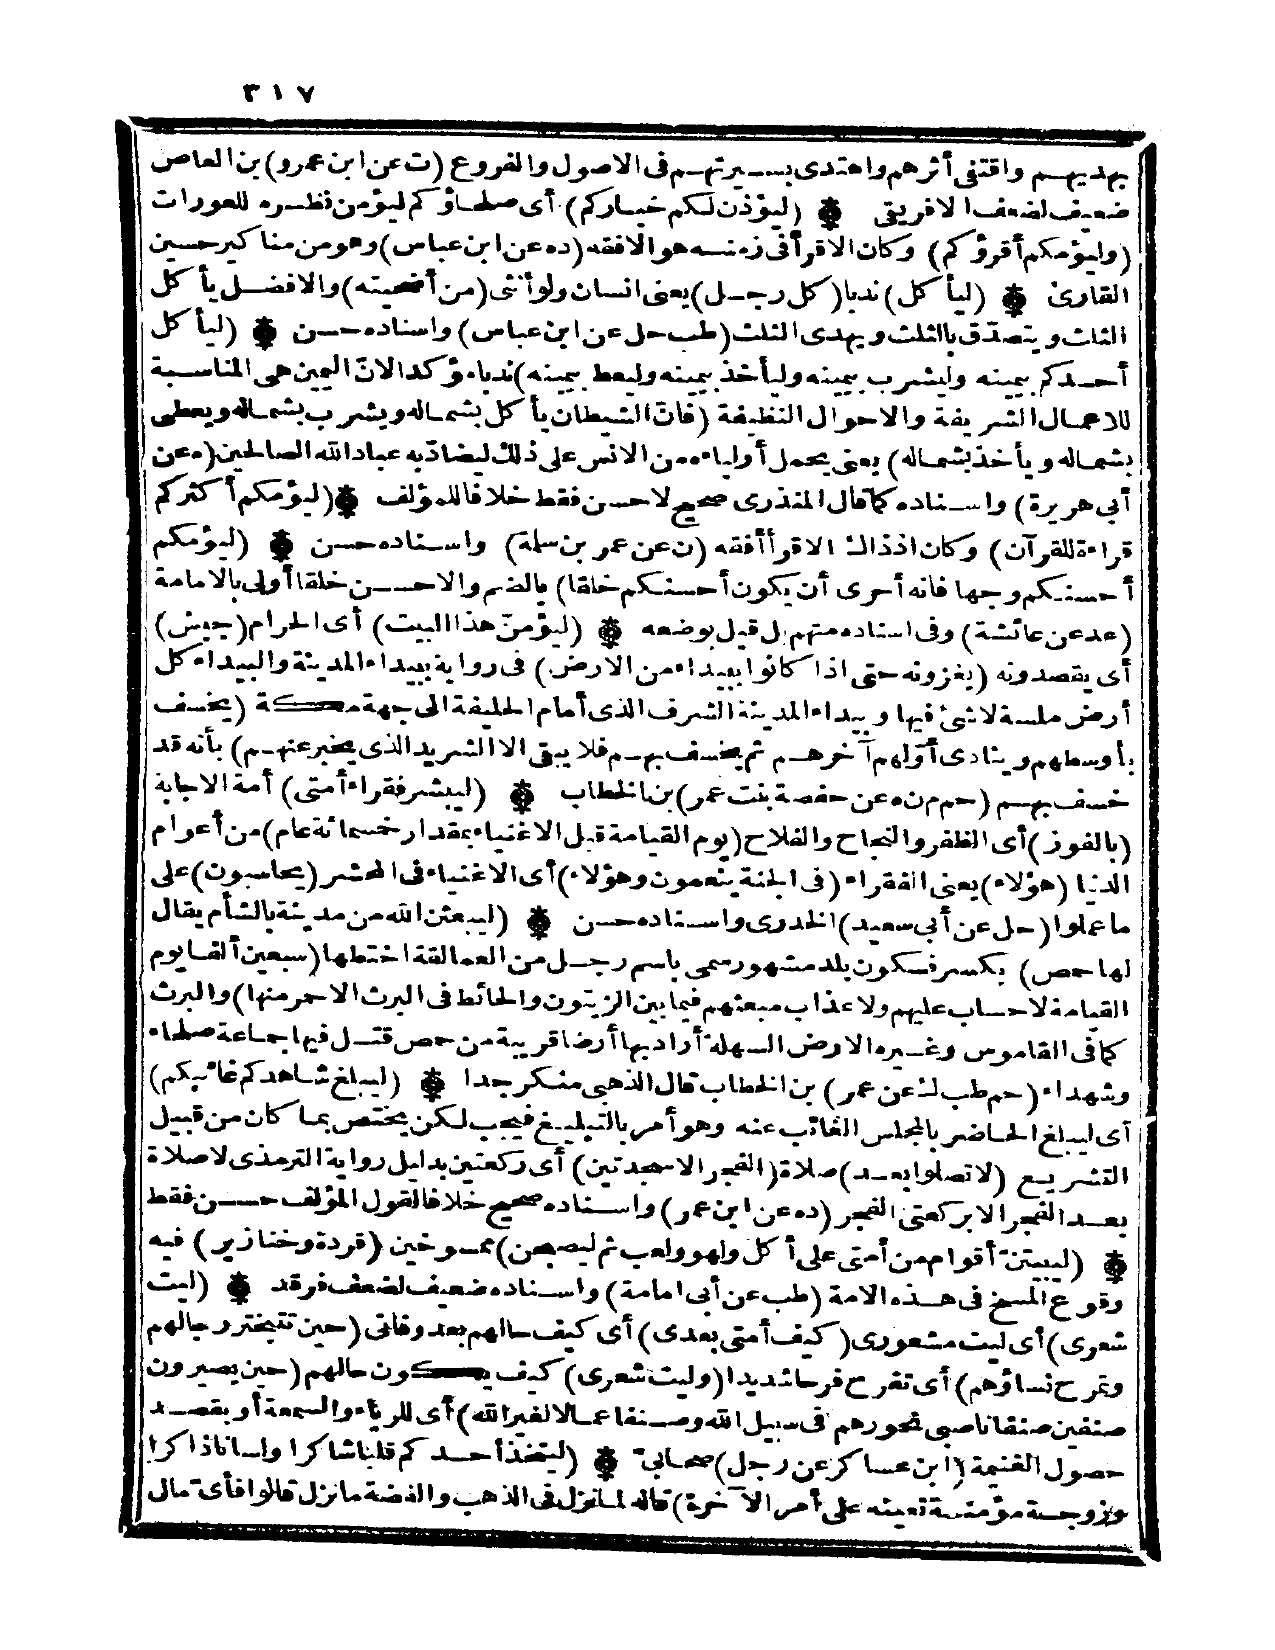 ٣١٧
بهديهم واقتفى أثرهم واهتدى بسيرتهم فى الاصول والفروع (ت عن ابن عمرو) بن العاص
ضعيف لضعف الافريقى ۞ (ليؤذن لكم خياركم) أى صلحاؤكم ليؤمن نظره للعورات
(وليؤمكم أقرؤكم) وكان الاقرأ فى زمنه هو الافقه (ده عن ابن عباس) وهو من مناكير حسين
القارئ ۞ (ليأكل) ندبا (كل رجل) يعنى انسان ولو أنثى (من أضحيته) والافضل يأكل
الثلث ويتصدق بالثلث ويهدى الثلث (طب حل عن ابن عباس) واسناده حسن ۞ (ليأكل
أحدكم بيمينه وليشرب بيمينه وليأخذ بيمينه وليعط بيمينه) ندبا مؤكدا لانّ اليمين هى المناسبة
للاعمال الشريفة والاحوال النظيفة (فانّ الشيطان يأكل بشماله ويشرب بشماله ويعطى
بشماله ويأخذ بشماله) يعنى يحمل أولياءه من الانس على ذلك ليضادّ به عباد الله الصالحين (ه عن
أبى هريرة) واسناده كما قال المنذرى صحيح لا حسن فقط خلافا للمؤلف ۞ (ليؤمكم أكثركم
قراءة للقرآن) وكان اذ ذاك الاقرأ أفقه (ن عن عمر بن سلمة) واسناده حسن ۞ (ليؤمكم
أحسنكم وجها فانه أحرى أن يكون أحسنكم خلقا) بالضم والاحسن خلقا أولى بالامامة
(عد عن عائشة) وفى اسناده متهم بل قيل بوضعه ۞ (ليؤمنّ هذا البيت) أى الحرام (جيش)
أى يقصدونه (يغزونه حتى اذا كانوا ببيداء من الارض) فى رواية ببيداء المدينة والبيداء كل
أرض ملسة لا شئ فيها وبيداء المدينة الشرف الذى أمام الحليفة الى جهة مكة (يخسف
بأوسطهم وينادى أوّلهم آخرهم ثم يخسف بهم فلا يبقى الا الشريد الذى يخبر عنهم) بأنه قد
خسف بهم (حم م ن ه عن حفصة بنت عمر) بن الخطاب ۞ (ليبشر فقراء أمتى) أمة الاجابة
(بالفوز) أى الظفر والنجاح والفلاح (يوم القيامة قبل الاغنياء بمقدار خمسمائة عام) من أعوام
الدنيا (هؤلاء) يعنى الفقراء (فى الجنة ينعمون وهؤلاء) أى الاغنياء فى المحشر (يحاسبون) على
ما عملوا (حل عن أبى سعيد) الخدرى واسناده حسن ۞ (ليبعثن الله من مدينة بالشأم يقال
لها حمص) بكسر فسكون بلد مشهور سمى باسم رجل من العمالقة اختطها (سبعين ألفا يوم
القيامة لا حساب عليهم ولا عذاب مبعثهم فيما بين الزيتون والحائط فى البرث الاحمر منها) والبرث
كما فى القاموس وغيره الارض السهلة أراد بها أرضا قريبة من حمص قتل فيها جماعة صلحاء
وشهداء (حم طب ك عن عمر) بن الخطاب قال الذهبى منكر جدا ۞ (ليبلغ شاهدكم غائبكم)
أى ليبلغ الحاضر بالمجلس الغائب عنه وهو أمر بالتبليغ فيجب لكن يختص بما كان من قبيل
التشريع (لا تصلوا بعد) صلاة (الفجر الا سجدتين) أى ركعتين بدليل رواية الترمذى لا صلاة
بعد الفجر الا ركعتى الفجر (ده عن ابن عمر) واسناده صحيح خلافا لقول المؤلف حسن فقط
۞ (ليبيتنّ أقوام من أمتى على أكل ولهو ولعب ثم ليصبحن) ممسوخين (قردة وخنازير) فيه
وقوع المسخ فى هذه الامة (طب عن أبى امامة) واسناده ضعيف لضعف فرقد ۞ (ليت
شعرى) أى ليت مشعورى (كيف أمتى بعدى) أى كيف حالهم بعد وفاتى (حين تتبختر رجالهم
وتمرح نساؤهم) أى تفرح فرحا شديدا (وليت شعرى) كيف يكون حالهم (حين يصيرون
صنفين صنفا ناصبى نحورهم فى سبيل الله وصنفا عمالا لغير الله) أى للرياء والسمعة أو بقصد
حصول الغنيمة (ابن عساكر عن رجل) صحابىّ ۞ (ليتخذ أحدكم قلبا شاكرا ولسانا ذاكرا
وزوجة مؤمنة تعينه على أمر الآخرة) قاله لما نزل فى الذهب والفضة ما نزل قالوا فأىّ مال